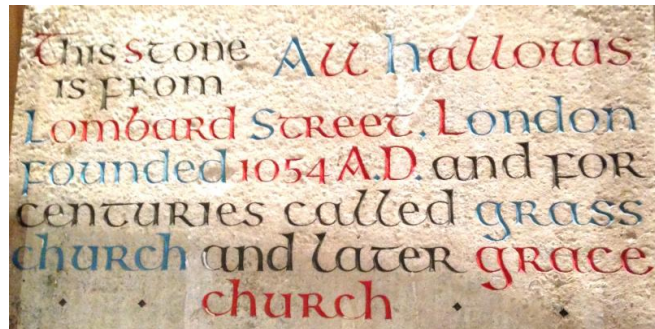 This stone All hallows
is from
Lombard Street, London
founded 1054 A.D. and for
centuries called grass
church and later grace
church